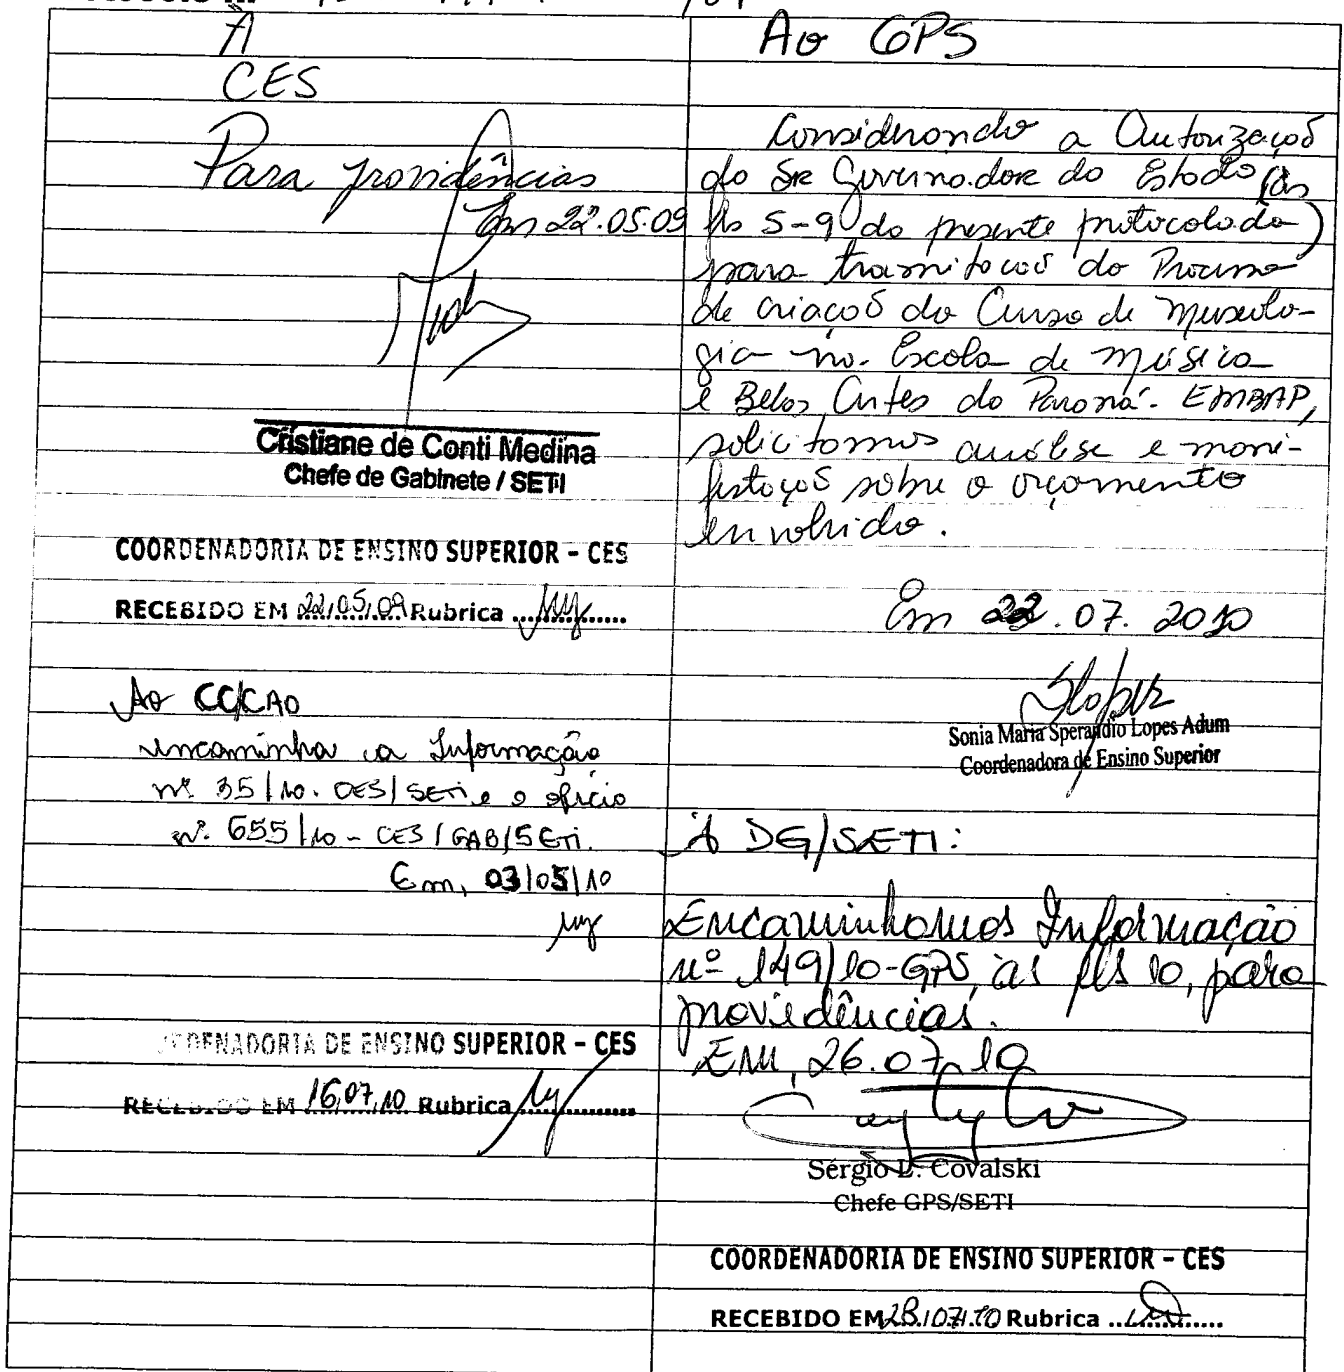 À
CES
Para providências
Em 22.05.09
Cristiane de Conti Medina
Chefe de Gabinete / SETI
COORDENADORIA DE ENSINO SUPERIOR - CES
RECEBIDO EM 22/05/09 Rubrica
Ao CC/CAO
encaminha a Informação
nº 35/10. CES/SETI e o ofício
nº. 655/10 - CES/GAB/SETI.
Em, 03/05/10
COORDENADORIA DE ENSINO SUPERIOR - CES
RECEBIDO EM 16/07/10 Rubrica
Ao GPS
Considerando a Autorização
do SR Governador do Estado (às
fls 5-9 do presente protocolado)
para tramitação do Processo
de criação do Curso de Museolo-
gia na Escola de Música
e Belas Artes do Paraná - EMBAP,
solicitamos análise e mani-
festação sobre o orçamento
envolvido.
Em 22.07.2010
Sonia Maria Sperandio Lopes Adum
Coordenadora de Ensino Superior
À DG/SETI:
Encaminhamos Informação
nº 149/10-GPS, às fls 10, para
providências.
EM, 26.07.10
Sérgio L. Covalski
Chefe GPS/SETI
COORDENADORIA DE ENSINO SUPERIOR - CES
RECEBIDO EM 28/07/10 Rubrica